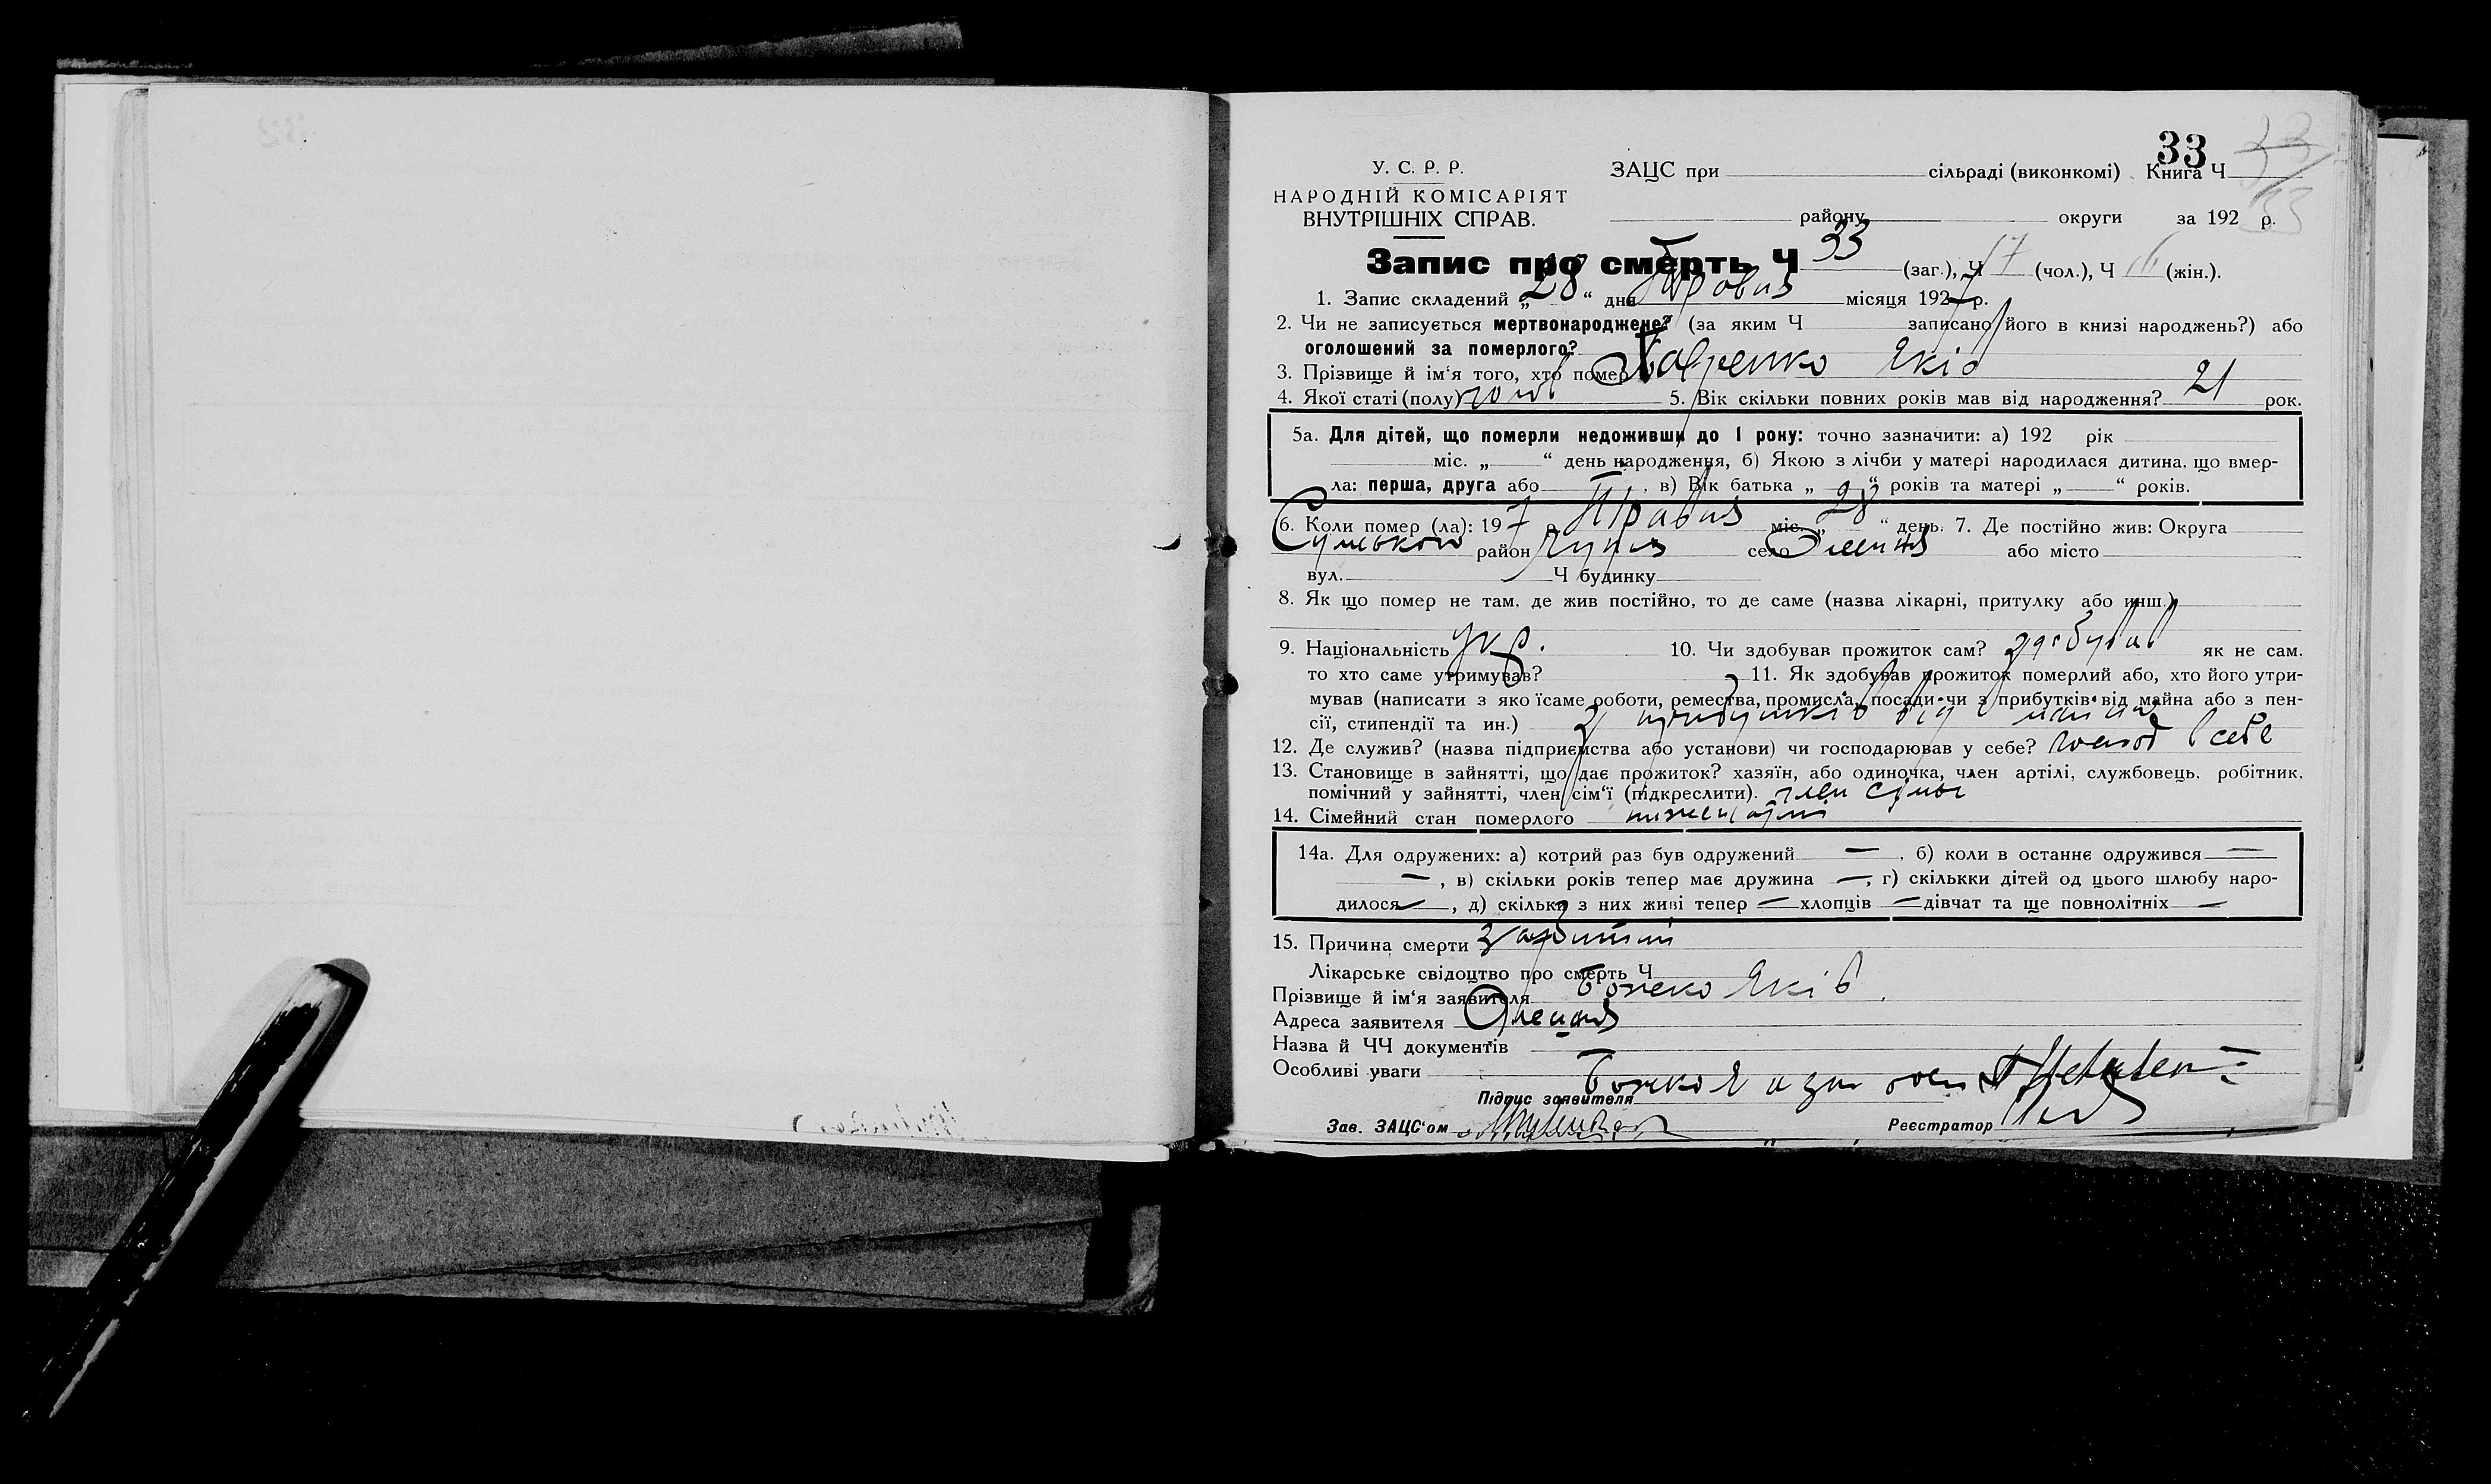 33
У. С. Р. Р.
НАРОДНІЙ КОМІСАРІЯТ
ВНУТРІШНІХ СПРАВ.
ЗАЦС при сільраді (виконкомі) Книга Ч 33
району округи за 192 р. 33
Запис про смерть Ч 33 (заг.), Ч 17 (чол.), Ч 16 (жін.).
1. Запис складений „28“ дня Травня місяця 1927 р.
2. Чи не записується мертвонароджене? (за яким Ч записано його в книзі народжень?) або
оголошений за померлого?
3. Прізвище й ім‘я того, хто помер Яків
4. Якої статі (полу) чолов 5. Вік скільки повних років мав від народження? 21 рок.
5а. Для дітей, що померли недоживши до 1 року: точно зазначити: а) 192 рік
міс. „ “ день народження, б) Якою з лічби у матері народилася дитина, що вмер-
ла: перша, друга або , в) Вік батька „ “ років та матері „ “ років.
6. Коли помер (ла): 197 р. Травня міс. „28“ день. 7. Де постійно жив: Округа
Сумської район село або місто
вул. Ч будинку
8. Як що помер не там, де жив постійно, то де саме (назва лікарні, притулку або инш.)
9. Національність укр. 10. Чи здобував прожиток сам? здобував як не сам.
то хто саме утримував? 11. Як здобував прожиток померлий або, хто його утри-
мував (написати з яко їсаме роботи, ремества, промисла, посади чи з прибутків від майна або з пен-
сії, стипендії та ин.) З прибутків від майна
12. Де служив? (назва підприємства або установи) чи господарював у себе? господ в себе
13. Становище в зайнятті, що дає прожиток? хазяїн, або одиночка, член артілі, службовець, робітник,
помічний у зайнятті, член сім‘ї (підкреслити). член сімьї
14. Сімейний стан померлого
14а. Для одружених: а) котрий раз був одружений — , б) коли в останнє одружився —
— , в) скільки років тепер має дружина — , г) скількки дітей од цього шлюбу наро-
дилося — , д) скільки з них живі тепер — хлопців — дівчат та ще повнолітніх —
15. Причина смерти
Лікарське свідоцтво про смерть Ч
Прізвище й ім‘я заявителя Яків
Адреса заявителя
Назва й ЧЧ документів
Особливі уваги
Підпис заявителя
Зав. ЗАЦС‘ом Реєстратор